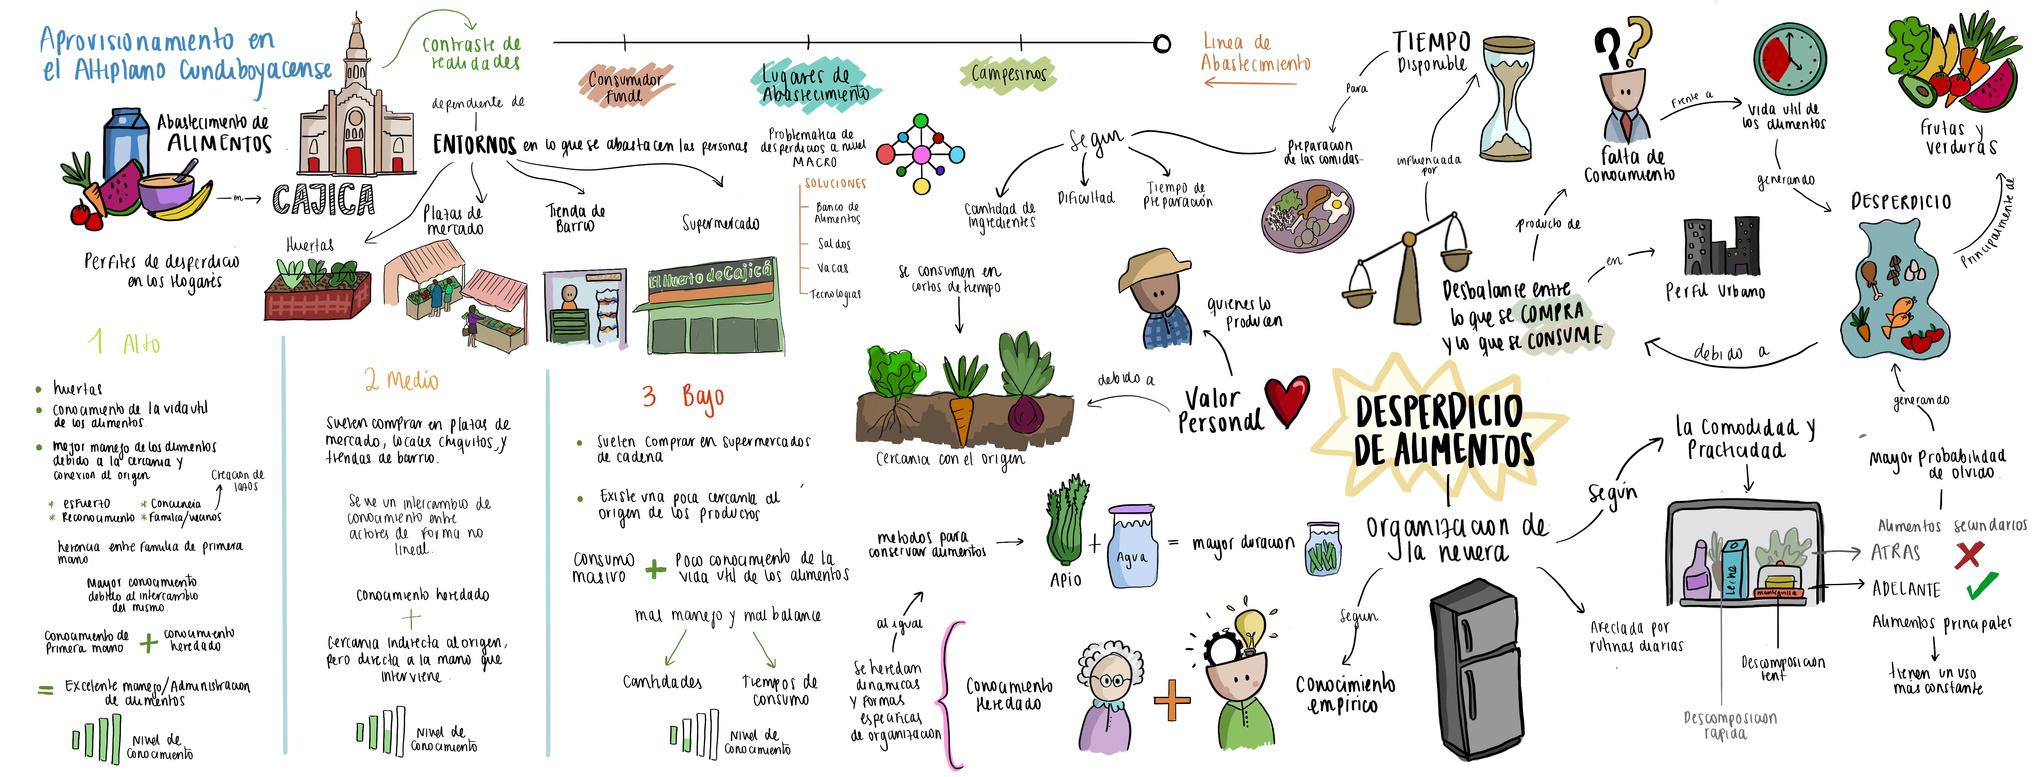 Aprovisionamiento en
el Altiplano Cundiboyacense
Abastecimiento de
ALIMENTOS
en
CAJICA
Contraste de
realidades
dependiente de
ENTORNOS en lo que se abastacen las personas
Huertas
Plazas de
mercado
Tienda de
Barrio
Supermercado
El Huerto de Cajicá
Consumidor
Final
Lugares de
Abastecimiento
Campesinos
Linea de
Abastecimiento
Problematica de
desperdicios a nivel
MACRO
SOLUCIONES
Banco de
Alimentos
Saldos
Vacas
Tecnologias
Perfiles de desperdicio
en los Hogares
1 Alto
huertas
conocimiento de la vida util
de los alimentos.
mejor manejo de los alimentos
debido a la cercania y
conexion al origen
Creacion de
lazos
* esfuerzo
* Conciencia
* Reconocimiento
* Familia/vecinos
herencia entre familia de primera
mano
Mayor conocimiento
debido al intercambio
del mismo.
Conocimiento de
Primera mano
+
conocimiento
heredado
= Excelente manejo/Administracion
de alimentos
Nivel de
Conocimiento
2 Medio
Suelen comprar en plazas de
mercado, locales chiquitos, y
tiendas de barrio.
Se ve un intercambio de
conocimiento entre
actores de forma no
lineal.
Conocimiento heredado
+
Cercania indirecta al origen,
pero directa a la mano que
interviene.
Nivel de
Conocimiento
3 Bajo
Suelen comprar en supermercados
de cadena
Existe una poca cercania al
origen de los productos
Consumo
masivo
+
Poco conocimiento de la
vida util de los alimentos
mal manejo y mal balance
Cantidades
Tiempos de
consumo
Nivel de
Conocimiento
TIEMPO
Disponible
Para
Preparacion
de las comidas
Segun
Cantidad de
Ingredientes
Dificultad
Tiempo de
Preparación
influenciada
por
Se consumen en
cortos de tiempo
quienes lo
producen
debido a
Valor
Personal
Cercania con el origen
metodos para
conservar alimentos
Apio
+
Agua
=
mayor duracion
al igual
Se heredan
dinamicas
y formas
especificas
de organizacion
Conocimiento
Heredado
+
Conocimiento
empirico
DESPERDICIO
DE ALIMENTOS
Organizacion de
la nevera
Segun
Según
Afectada por
rutinas diarias
la Comodidad y
Practicidad
Leche
mantequilla
Descomposicion
lenta
Descomposicion
rapida
Desbalance entre
lo que se COMPRA
y lo que se CONSUME
en
Perfil Urbano
producto de
falta de
Conocimiento
Frente a
Vida util de
los alimentos
generando
DESPERDICIO
debido a
Principalmente de
Frutas y
verduras
generando
Mayor Probabilidad
de olvido
Alimentos secundarios
ATRAS
ADELANTE
Alimentos principales
tienen un uso
mas constante